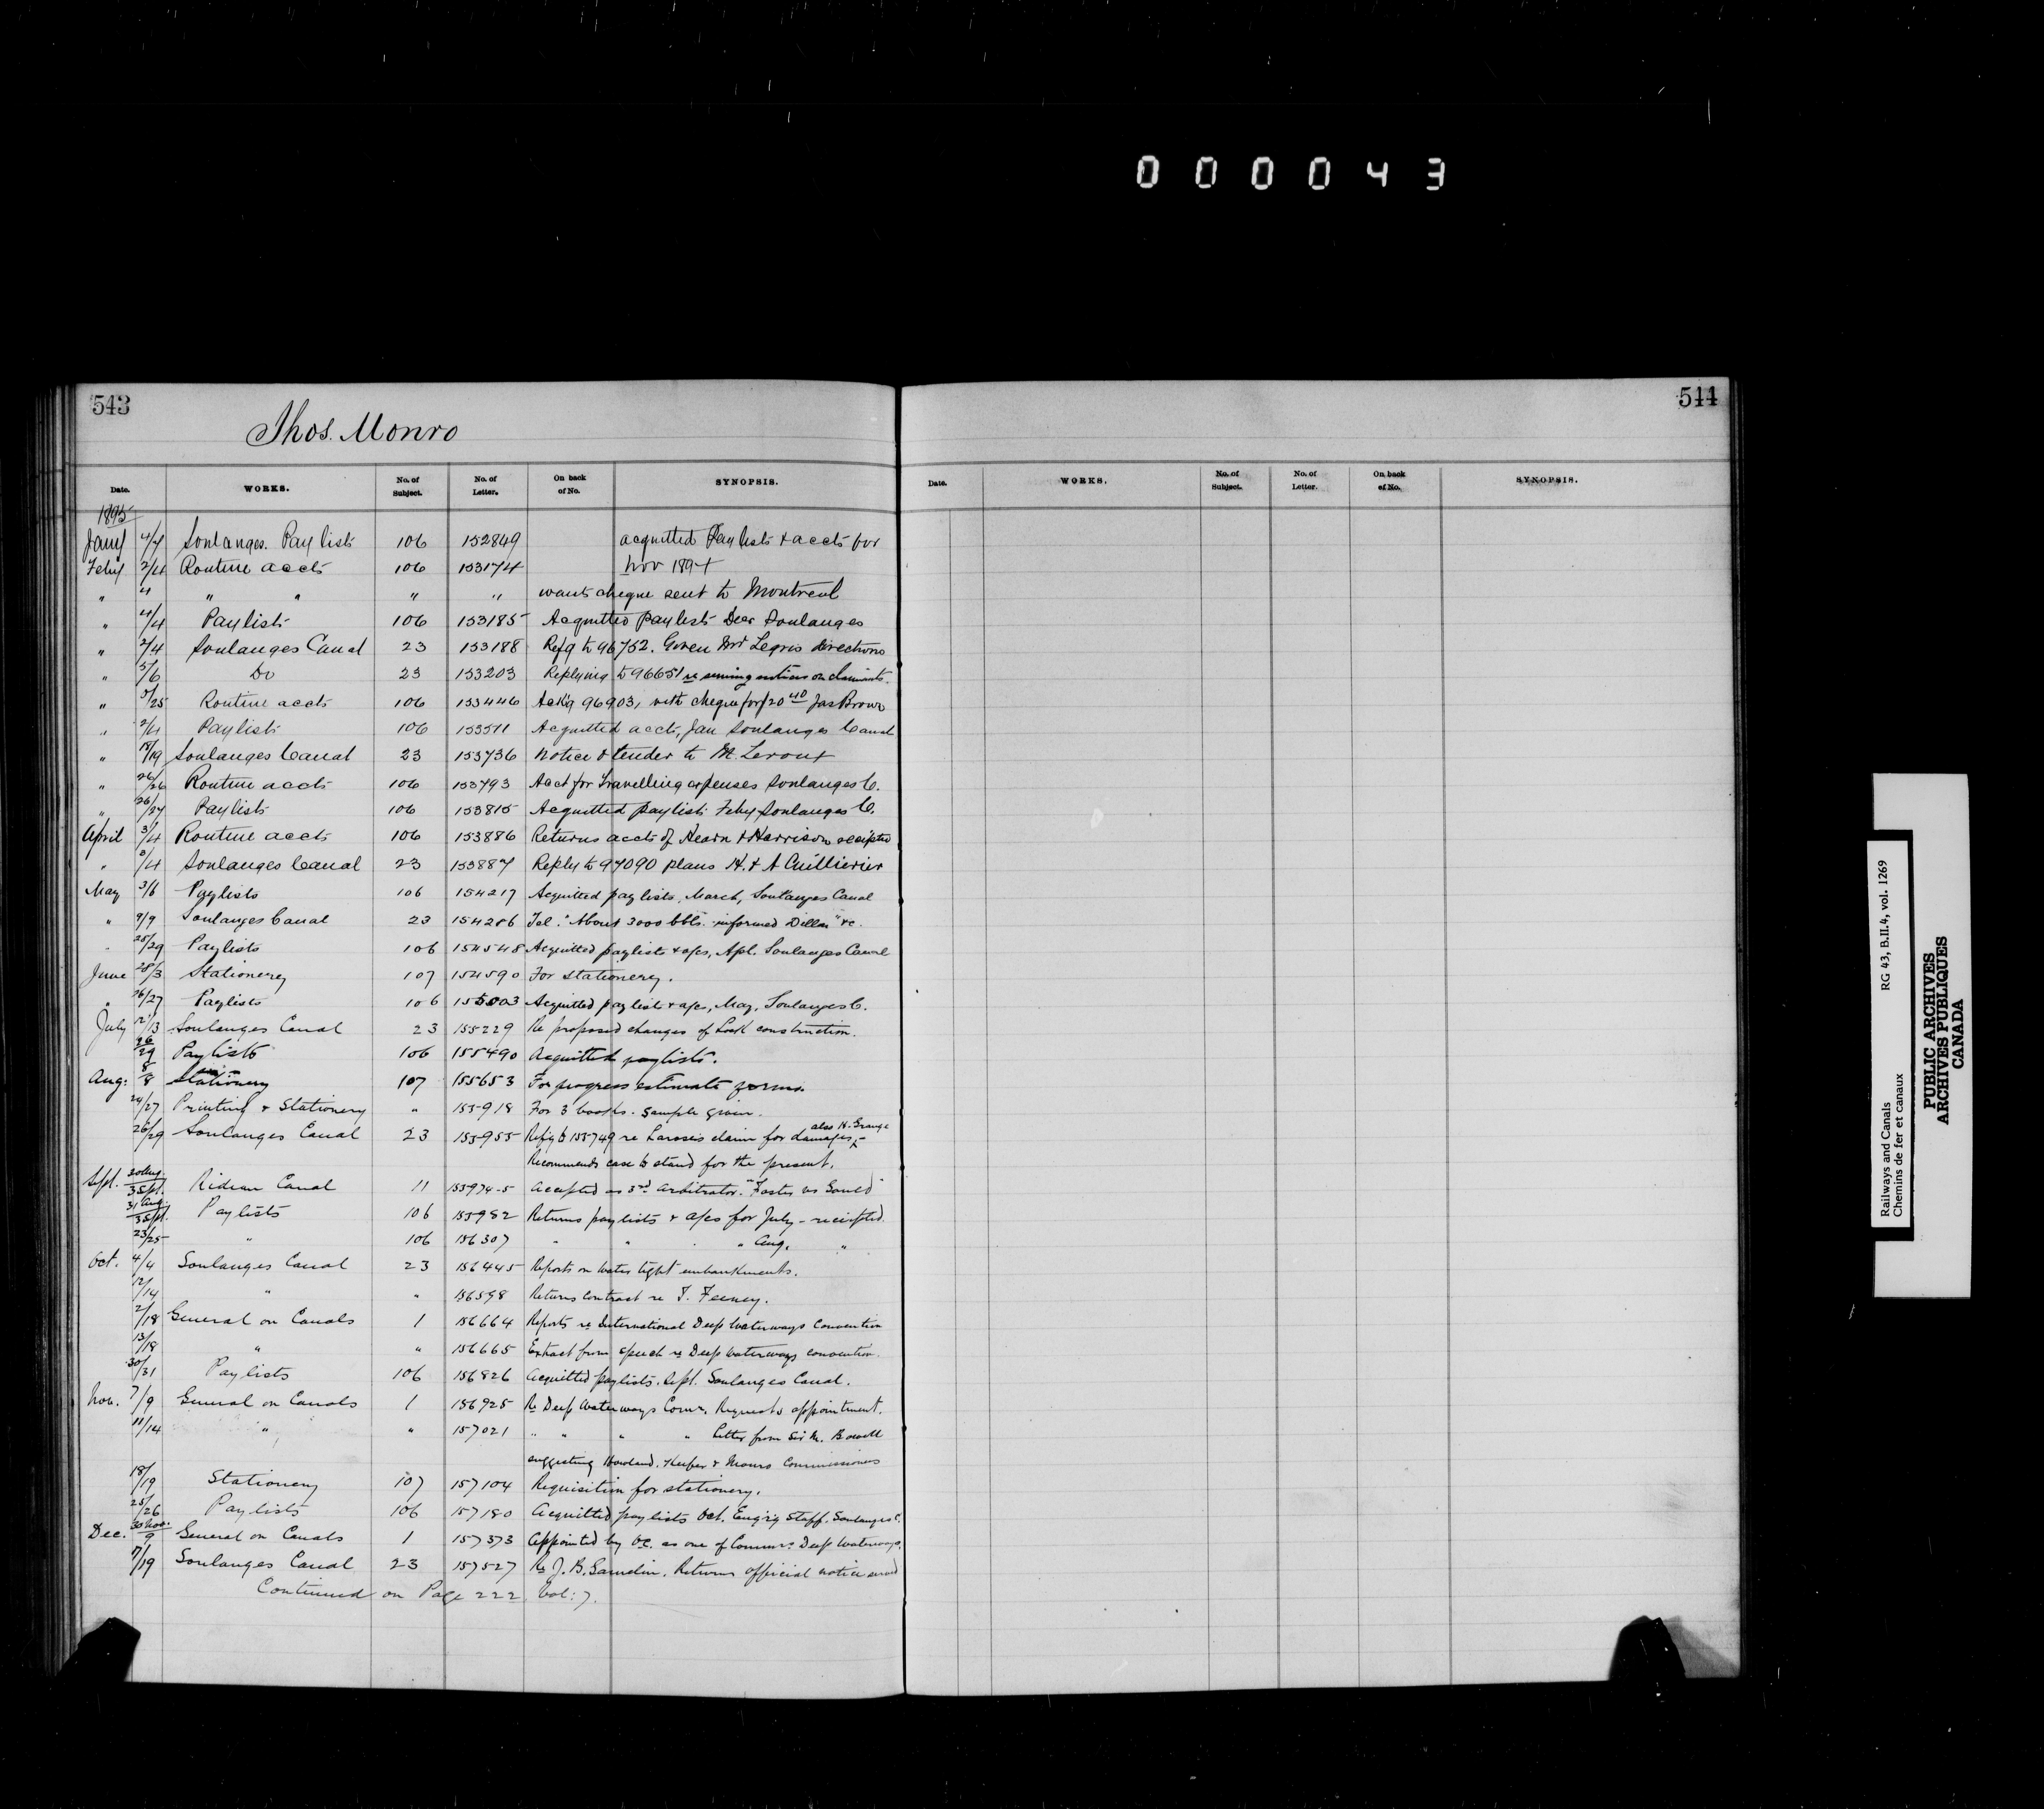 000043
543
Thos. Monro
Date. WORKS. No. of Subject. No. of Letter. On back of No. SYNOPSIS.
1895
Jany 4/7 Soulanges. Pay lists 106 152849 acquitted Pay lists & accts for
Feby 2/4 Routine accts 106 153174 Nov 1894
" 4 " " " " wants cheque sent to Montreal
" 4/4 Paylists 106 153185 Acquitted paylists Decr Soulanges
" 2/4 Soulanges Canal 23 153188 Refg to 96752. Given Mr Legris directions
" 5/6 Do 23 153203 Replying to 96651 re serving notices on claimants.
" 5/25 Routine accts 106 153446 Ackg 96903, with cheque for 120 40 Jas Brown
" 2/4 Paylists 106 153511 Acquitted accts, Jan Soulanges Canal
" 18/19 Soulanges Canal 23 153736 Notice & tender to M. Leroux
" 26/26 Routine accts 106 153793 Acct for Travelling expenses Soulanges C.
" 26/27 Paylists 106 153815 Acquitted paylists Feby Soulanges C.
April 3/4 Routine accts 106 153886 Returns accts of Hearn & Harrison receipted
" 3/4 Soulanges Canal 23 153887 Reply to 97090 plans H. & A Cuillierier
May 3/6 Paylists 106 154217 Acquitted paylists, March, Soulanges Canal
" 9/9 Soulanges Canal 23 154286 Tel. "About 3000 bbls. informed Dillon" &c.
" 28/29 Paylists 106 154548 Acquitted paylists & a/cs, Apl. Soulanges Canal
June 28/3 Stationery 107 154590 For stationery.
" 26/27 Paylists 106 155003 Acquitted paylists & a/cs, May, Soulanges C.
July 12/13 Soulanges Canal 23 155229 Re proposed changes of Lock construction.
26/29 Paylists 106 155490 Acquitted paylists.
Aug: 8/8 Stationery 107 155653 For progress estimate forms.
24/27 Printing & Stationery " 155918 For 3 books. Sample given.
26/29 Soulanges Canal 23 155955 Refg to 155749 re Larose's claim for damages, also H. Grange
Recommends case to stand for the present.
Sept. 30 Aug./3 Sept. Rideau Canal 11 155974-5 Accepted as 3rd Arbitrator. "Foster vs Gould"
31 Aug./3 Sept. Paylists 106 155982 Returns paylists & a/cs for July - receipted.
23/25 " 106 156307 " " " Aug. "
Oct. 4/4 Soulanges Canal 23 156445 Reports on water tight embankments.
12/14 " " 156598 Returns contract re T. Feeney.
2/18 General on Canals 1 156664 Reports re International Deep Waterways Convention
13/18 " " 156665 Extract from speech re Deep Waterways convention.
30/31 Paylists 106 156826 Acquitted paylists. Sept. Soulanges Canal.
Nov. 7/9 General on Canals 1 156925 Re Deep Waterways Comrs. Requests appointment.
11/14 " " 157021 " " " " Letter from Sir M. Bowell
suggesting Howland, Keefer & Monro Commissioners
18/19 Stationery 107 157104 Requisition for stationery.
25/26 Paylists 106 157180 Acquitted paylists Oct. Eng'rg Staff. Soulanges C.
Dec. 30 Nov./9 General on Canals 1 157373 Appointed by O.C. as one of Commrs. Deep Waterways.
17/19 Soulanges Canal 23 157527 Re J. B. Gamelin. Returns official notice served
Continued on Page 222. Vol: 7.
544
Date. WORKS. No. of Subject. No. of Letter. On back of No. SYNOPSIS.
Railways and Canals RG 43, B.II.4, vol. 1269
Chemins de fer et canaux
PUBLIC ARCHIVES
ARCHIVES PUBLIQUES
CANADA